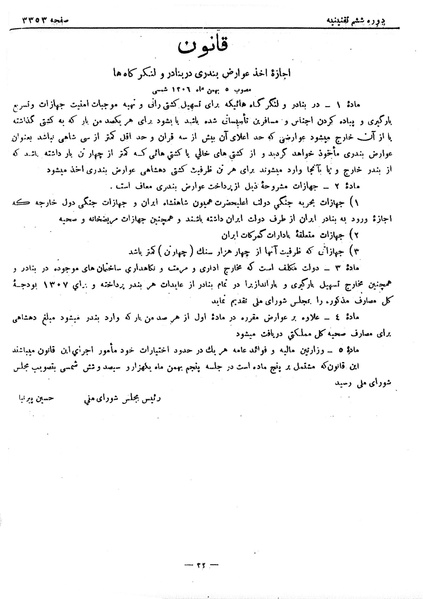 دوره ششم تقنینیه
صفحه ۳۳۵۳
قانون
اجازهٔ اخذ عوارض بندری در بنادر و لنگرگاه‌ها
مصوب ۵ بهمن ماه ۱۳۰۶ شمسی
مادهٔ ۱ – در بنادر و لنگرگاه هائیکه برای تسهیل کشتی رانی و تهیه موجبات امنیت جهازات و تسریع
بارگیری و پیاده کردن اجناس و مسافرین تأسیساتی شده باشد یا بشود برای هر یکصد من بار که به کشتی گذاشته
یا از آن خارج میشود عوارضی که حد اعلای آن بیش از سه قران و حد اقل کمتر از سی شاهی نباشد بعنوان
عوارض بندری مأخوذ خواهد گردید و از کشتی های خالی یا کشتی هائی که کمتر از چهار تن بار داشته باشد که
از بندر خارج و یا بآنجا وارد میشوند برای هر تن ظرفیت کشتی دهشاهی عوارض بندری اخذ میشود
مادهٔ ۲ – جهازات مشروحهٔ ذیل از پرداخت عوارض بندری معاف است .
۱) جهازات بحریه جنگی دولت اعلیحضرت همیون شاهنشاه ایران و جهازات جنگی دول خارجه که
اجازهٔ ورود به بنادر ایران از طرف دولت ایران داشته باشند و همچنین جهازات مریضخانه و صحیه
۲) جهازات متعلقهٔ بادارات گمرکات ایران
۳) جهازاتی که ظرفیت آنها از چهار هزار سنگ (چهار تن) کمتر باشد
مادهٔ ۳ – دولت مکلف است که مخارج اداری و مرمت و نگاهداری ساختمان های موجود در بنادر و
همچنین مخارج تسهیل بارگیری و باراندازیرا در تمام بنادر از عایدات هر بندر پرداخته و برای ۱۳۰۷ بودجهٔ
کل مصارف مذکوره را بمجلس شورای ملی تقدیم نماید
مادهٔ ٤ – علاوه بر عوارض مقرره در مادهٔ اول از هر صد من بار که وارد بندر میشود مبلغ دهشاهی
برای مصارف صحیه کل مملکتی دریافت میشود
مادهٔ ۵ – وزارتین مالیه و فوائد عامه هر یك در حدود اختیارات خود مأمور اجرای این قانون میباشند
این قانون که مشتمل بر پنج ماده است در جلسه پنجم بهمن ماه یکهزار و سیصد و شش شمسی بتصویب مجلس
شورای ملی رسید
رئیس مجلس شورای ملی
حسین پیرنیا
– ۲۲ –